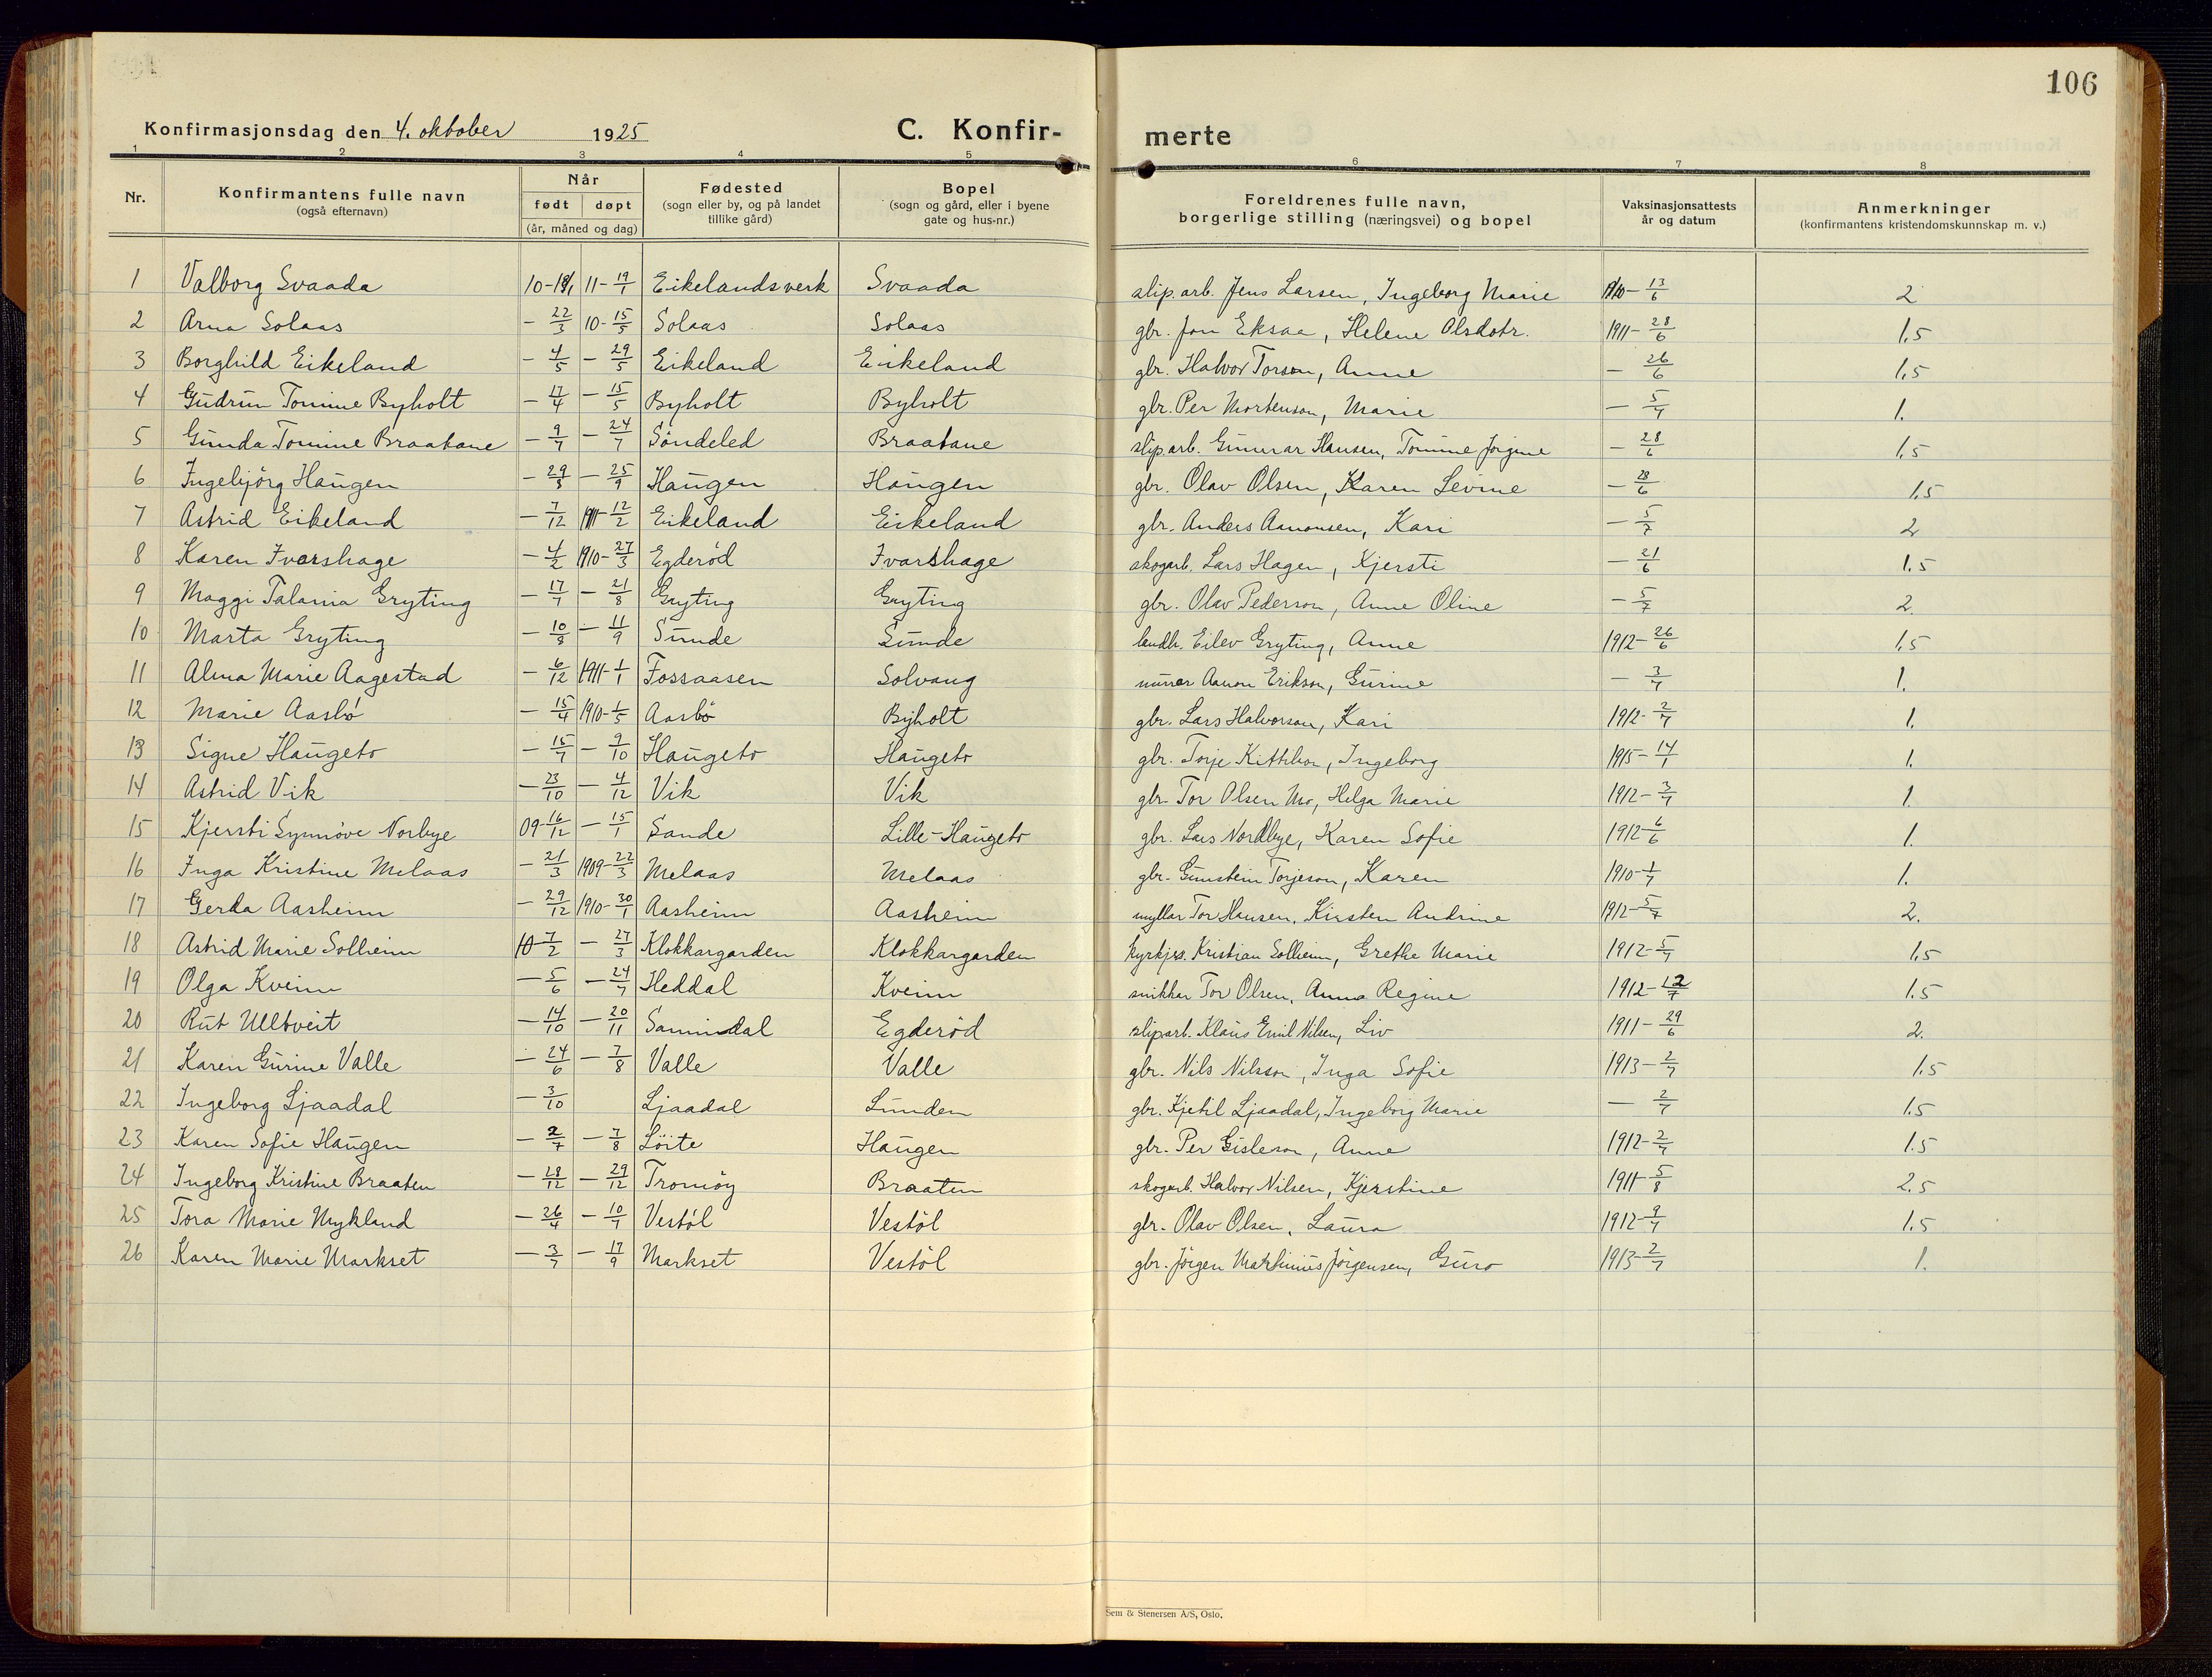 106
Konfirmasjonsdag den 4. oktober 1925 C. Konfirmerte
1 2 3 4 5 6 7 8
Nr. Konfirmantens fulle navn (også efternavn) Når født døpt (år, måned og dag) Fødested (sogn eller by, og på landet tillike gård) Bopel (sogn og gård, eller i byene gate og hus-nr.) Foreldrenes fulle navn, borgerlige stilling (næringsvei) og bopel Vaksinasjonsattests år og datum Anmerkninger (konfirmantens kristendomskunnskap m. v.)
1 Valborg Svaada 11-19/1 Eikelandsverk Svaada slip.arb. Jens Larsen, Ingeborg Marie 1910-13/6 2
2 Arna Solaas - 22/3 10-15/5 Solaas Solaas gbr. Jon Eksaa, Helene Olsdotr. 1911-28/6 1,5
3 Borghild Eikeland - 4/5 - 29/5 Eikeland Eikeland gbr. Halvor Torson, Anne - 26/6 1,5
4 Gudrun Tomine Byholt - 17/4 - 15/5 Byholt Byholt gbr. Per Mortenson, Marie - 5/7 1.
5 Gunda Tomine Braatane - 9/7 - 24/7 Söndeled Braatane slip.arb. Gunnar Hansen, Tomine Jörgine - 28/6 1,5
6 Ingebjörg Haugen - 29/8 - 25/9 Haugen Haugen gbr. Olav Olsen, Karen Levine - 28/6 1,5
7 Astrid Eikeland - 7/12 1911-12/2 Eikeland Eikeland gbr. Anders Aanonsen, Kari - 5/7 2
8 Karen Ivarshage - 4/2 1910-27/3 Egderöd Ivarshage skogarb. Lars Hagen, Kjersti - 21/6 1.5
9 Maggi Talania Gryting - 17/7 - 21/8 Gryting Gryting gbr. Olav Pederson, Anne Oline - 5/7 2.
10 Marta Gryting - 10/8 - 11/9 Sunde Sunde landh. Eilev Gryting, Anne 1912-26/6 1,5
11 Alma Marie Aagestad - 6/12 1911-1/1 Fossaasen Solvang murar Aanon Erikson, Gurine - 3/7 1.
12 Marie Aasbö - 15/4 1910-1/5 Aasbö Byholt gbr. Lars Halvorson, Kari 1912-2/7 1.
13 Signe Haugeto - 15/7 - 9/10 Haugeto Haugeto gbr. Torje Kittilson, Ingeborg 1915-14/1 1.
14 Astrid Vik - 23/10 - 4/12 Vik Vik gbr. Tor Olsen Mo, Helga Marie 1912-3/7 1.
15 Kjersti Synnöve Norbye 09-16/12 - 15/1 Sande Lille-Haugeto gbr. Lars Nordbye, Karen Sofie 1912-6/6 1.
16 Inga Kristine Melaas - 21/3 1909-22/3 Melaas Melaas gbr. Gunstein Torjeson, Karen 1910-1/7 1.
17 Gerda Aasheim - 29/12 1910-30/1 Aasheim Aasheim myllar Tor Hansen, Kirsten Andrine 1912-5/7 2.
18 Astrid Marie Solheim 10-7/2 - 27/3 Klokkargarden Klokkargarden kyrkjes. Kristian Solheim, Grethe Marie 1912-5/7 1,5
19 Olga Kveim - 5/6 - 24/7 Heddal Kveim snikkar Tor Olsen, Anna Regine 1912-12/7 1.5
20 Rut Ulltveit - 14/10 - 20/11 Sannidal Egderöd slip.arb. Klaus Emil Nilsen, Liv 1911-29/6 2.
21 Karen Gurine Valle - 24/6 - 7/8 Valle Valle gbr. Nils Nilsson, Inga Sofie 1913-2/7 1.5
22 Ingeborg Ljaadal - 3/10 Ljaadal Lunden gbr. Kjetil Ljaadal, Ingeborg Marie - 2/7 1.5
23 Karen Sofie Haugen - 2/7 - 7/8 Löite Haugen gbr. Per Gisleson, Anne 1912-2/7 1.5
24 Ingeborg Kristine Braaten - 28/12 - 29/12 Tromöy Braaten skogarb. Halvor Nilsen, Kjerstine 1911-5/8 2.5
25 Tora Marie Mykland - 26/4 - 10/7 Vestöl Vestöl gbr. Olav Olsen, Laura 1912-9/7 1.5
26 Karen Marie Markset - 3/7 - 17/9 Markset Vestöl gbr. Jörgen Martinius Jörgensen, Guro 1913-2/7 1.
Sem & Stenersen A/S, Oslo.